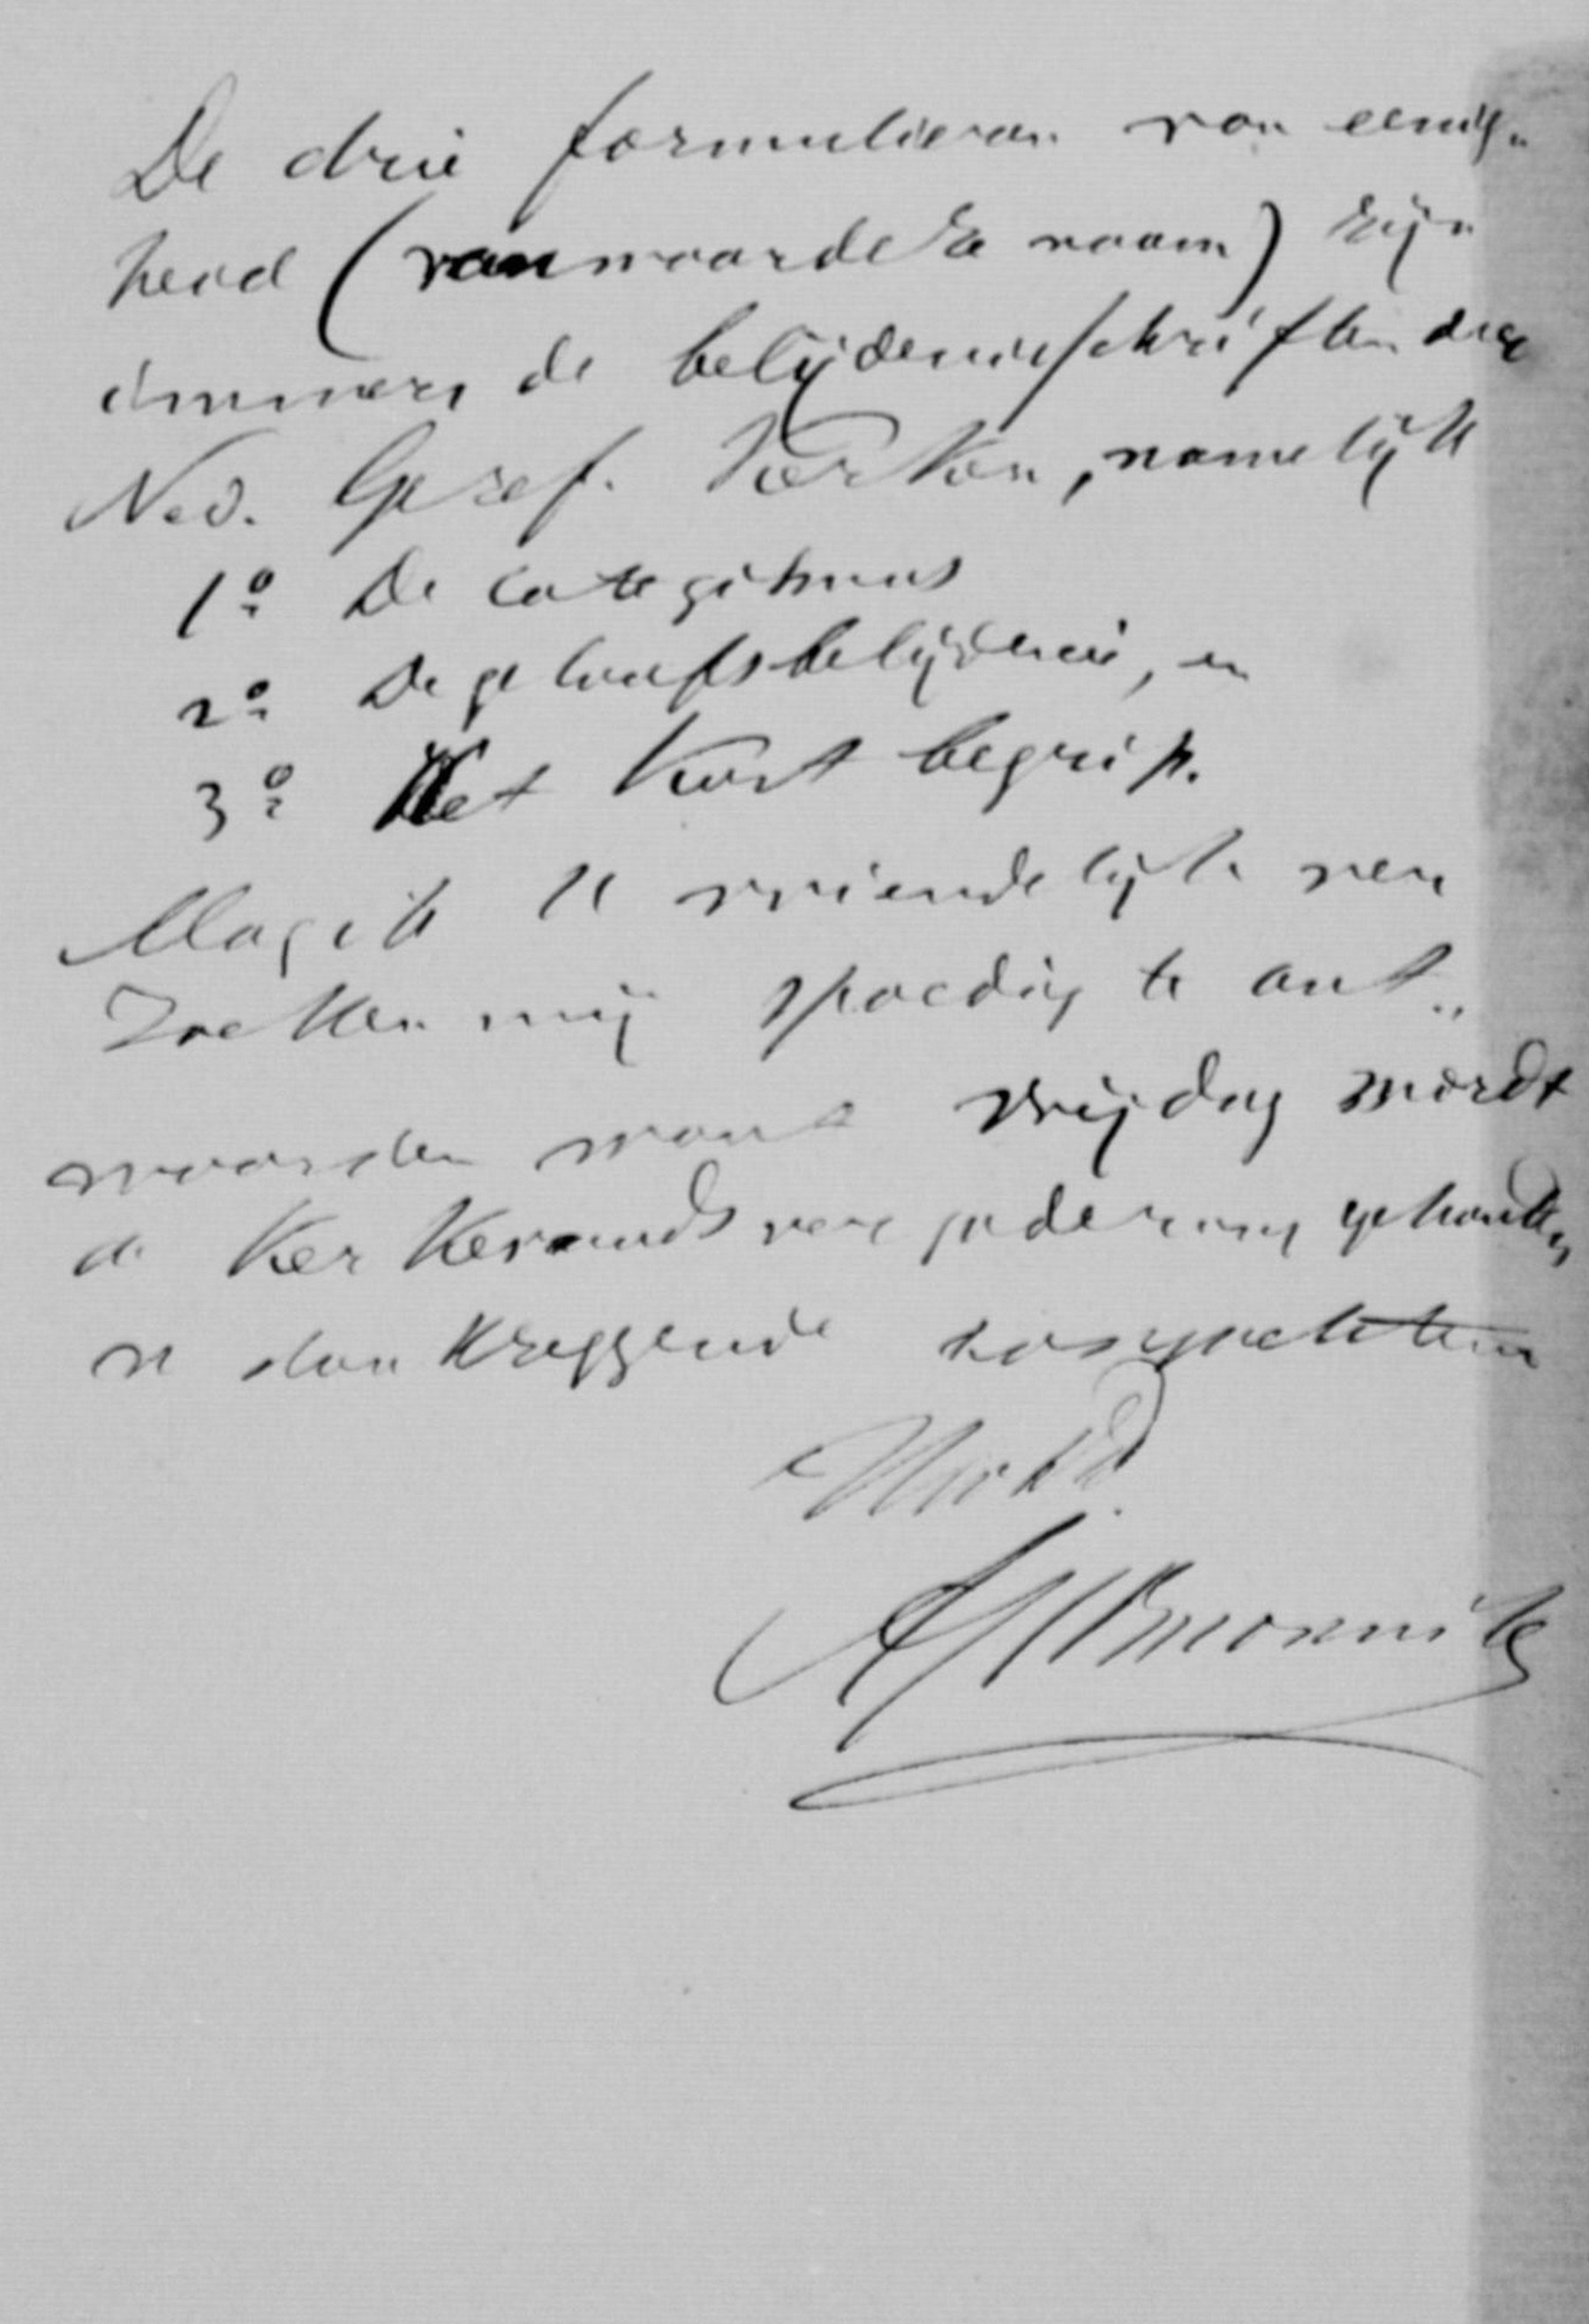 De drie formulieren van eenig„
heid (van waar deze naam) zijn
immers de belijdenisschriften der
Ned. Geref. Kerken, namelijk
1º De categismus
2º De geloofsbelijdenis, en
3º Het Kort begrip.
Mag ik U vriendelijk ver
zoeken mij spoedig te ant„
woorden want vrijdag wordt
de Kerkeraadsvergadering gehouden
U dankzeggende